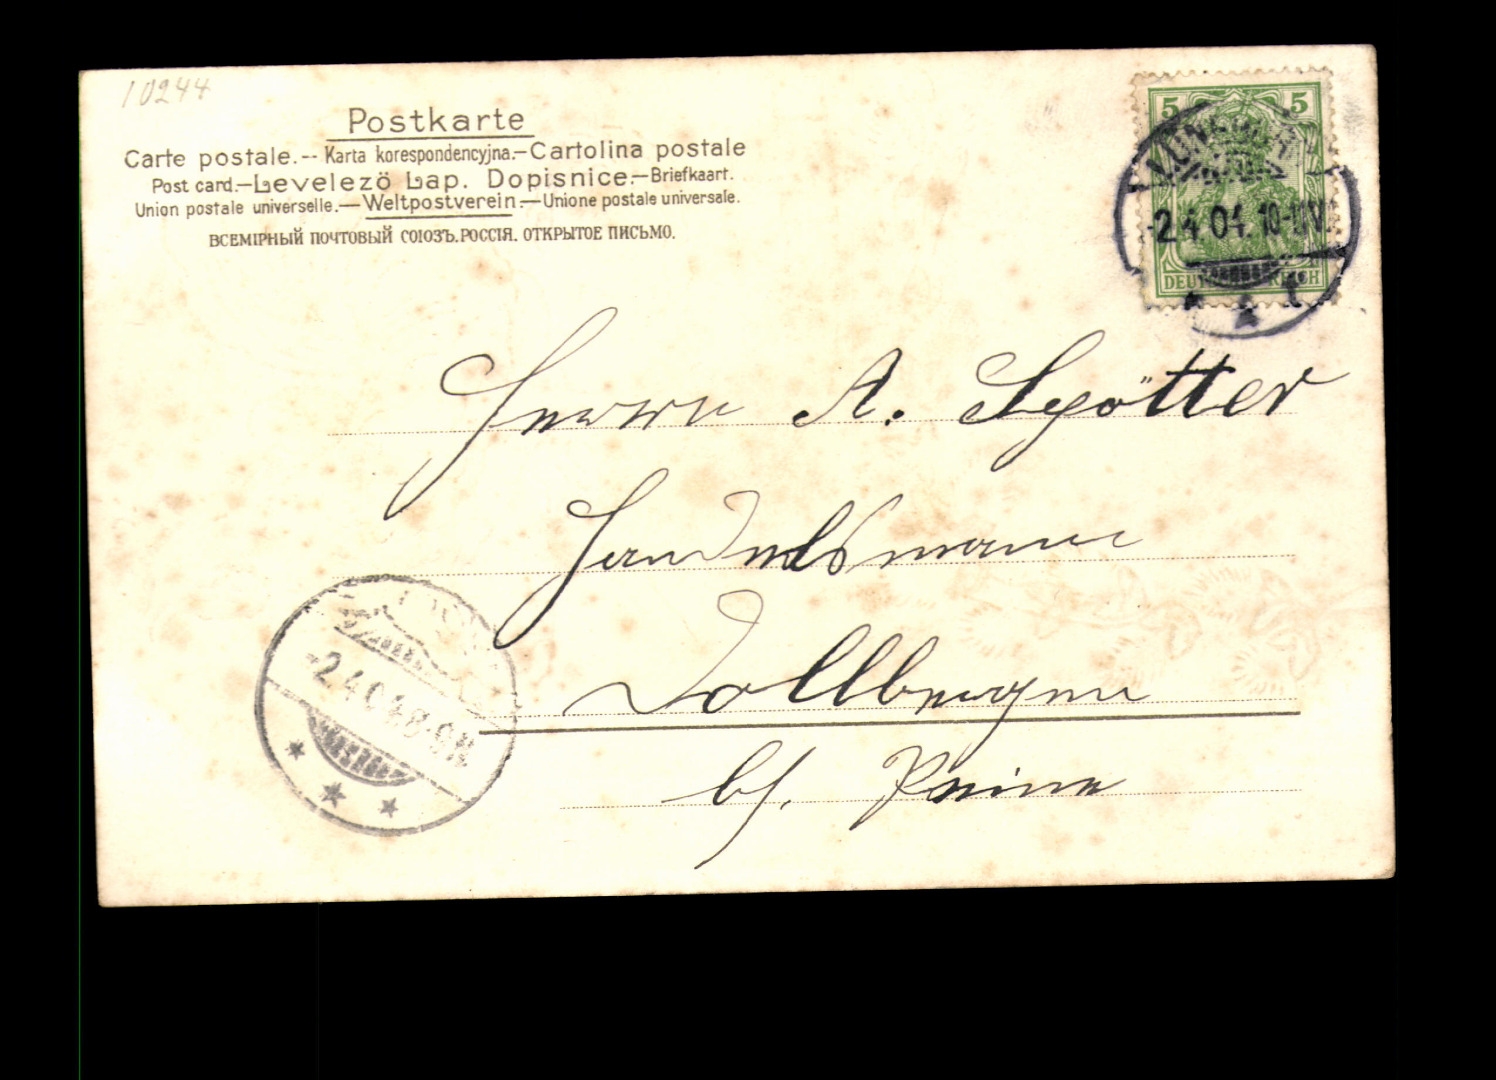 10244
Postkarte
Carte postale.-- Karta korespondencyjna.—Cartolina postale
Post card.—Levelezö Lap. Dopisnice.—Briefkaart.
Union postale universelle.—Weltpostverein.—Unione postale universale.
ВСЕМІРНЫЙ ПОЧТОВЫЙ СОЮЗЪ.РОССІЯ. ОТКРЫТОЕ ПИСЬМО.
5 5
-2.4.04. 10-11V.
DEUTSCHES REICH
Herrn A. Spötter
Handelsmann
Dollbergen
b/. Peine
-2.4.04.8-9N.